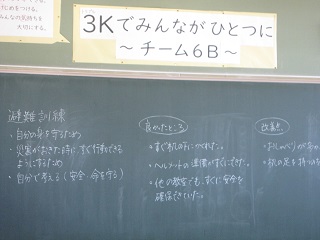 ためをつける。
みんなの気持ちを
大切にする。
3Kでみんなが ひとつに
～チーム6B～
避難訓練
・自分の身を守るため
・災害がおきた時に、すぐ行動できる
ようにするため
・自分で考える(安全・命を守る)
良かったところ
・すぐ机の下にかくれた。
・ヘルメットの準備がすぐにできた。
・他の教室でも、すぐに安全を
確保できていた。
改善点
・おしゃべりが
・机の足を持つ